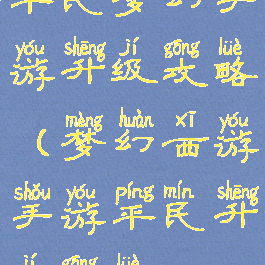 平民梦幻手
yóu shēng jí gōng lüè
游升级攻略
mèng huàn xī yóu
(梦幻西游
shǒu yóu píng mín shēng
手游平民升
jí gōng lüè